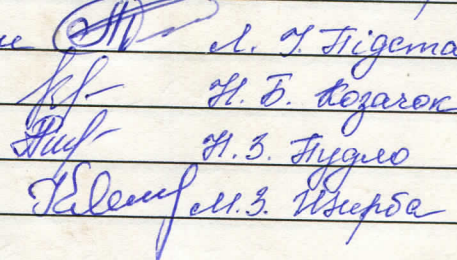 Л. І. Підста
Н. Б. Козачок
Н. З. Пудло
М. З. Щирба